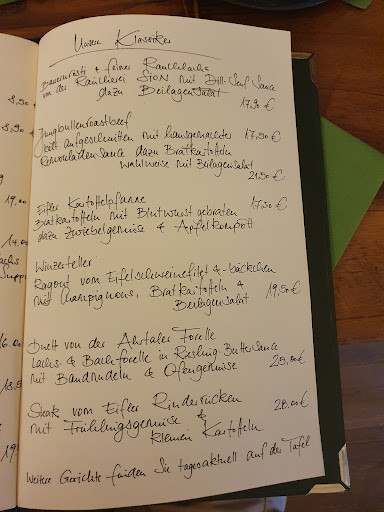 Unsere Klassiker
Bauernrösti + feiner Räucherlachs
von der Räucherei Sion mit Dill-Senf Sauce
dazu Beilagensalat
17,90 €
Jungbullenroastbeef
kalt aufgeschnitten mit hausgemachter 17,50 €
Remouladensauce dazu Bratkartoffeln
wahlweise mit Beilagensalat
21,50 €
Eifler Kartoffelpfanne
Bratkartoffeln mit Blutwurst gebraten 17,50 €
dazu Zwiebelgemüse & Apfelkompott
Winzerteller
Ragout vom Eifelschweinefilet & -bäckchen
mit Champignons, Bratkartoffeln & 19,50 €
Beilagensalat
Duett von der Ahrtaler Forelle
Lachs- & Bachforelle in Riesling-Butter Sauce
mit Bandnudeln & Ofengemüse 25,00 €
Steak vom Eifler Rinderrücken 28,00 €
mit Frühlingsgemüse &
kleinen Kartoffeln
Weitere Gerichte finden Sie tagesaktuell auf der Tafel